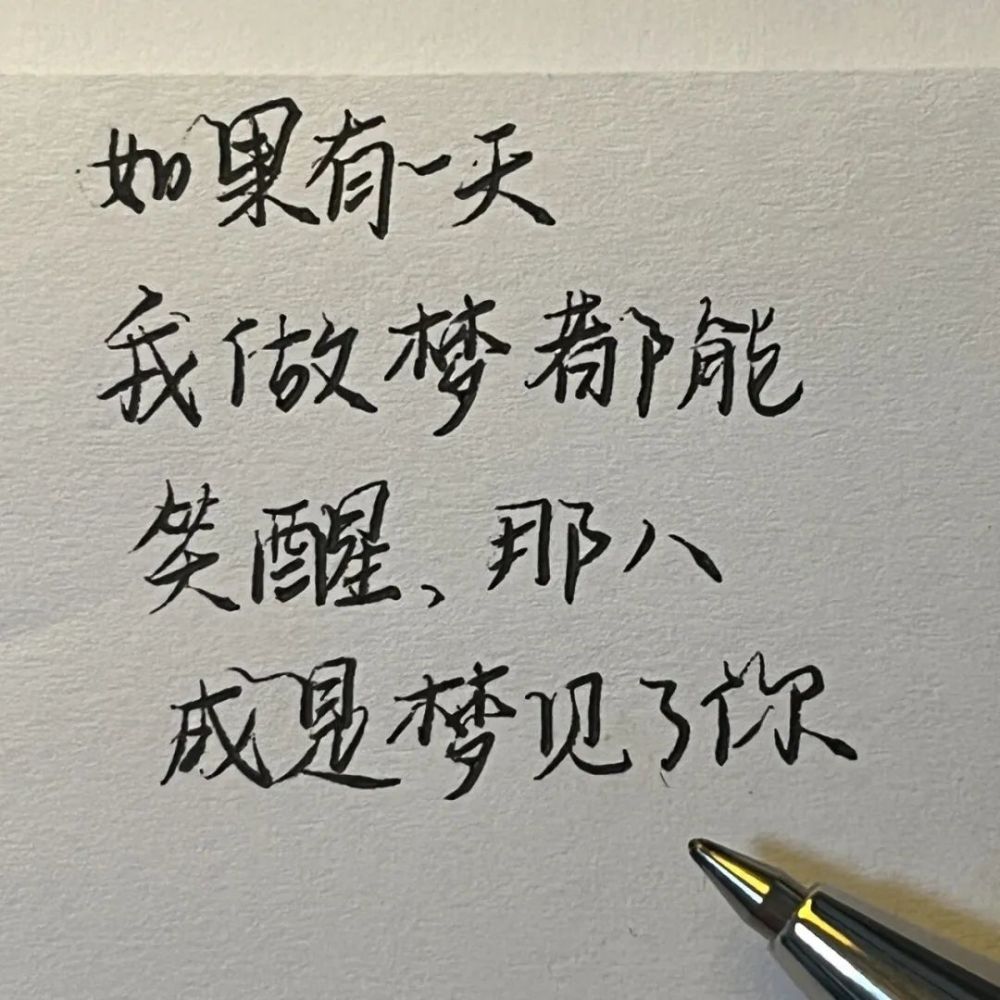 如果有一天
我做梦都能
笑醒、那八
成是梦见了你